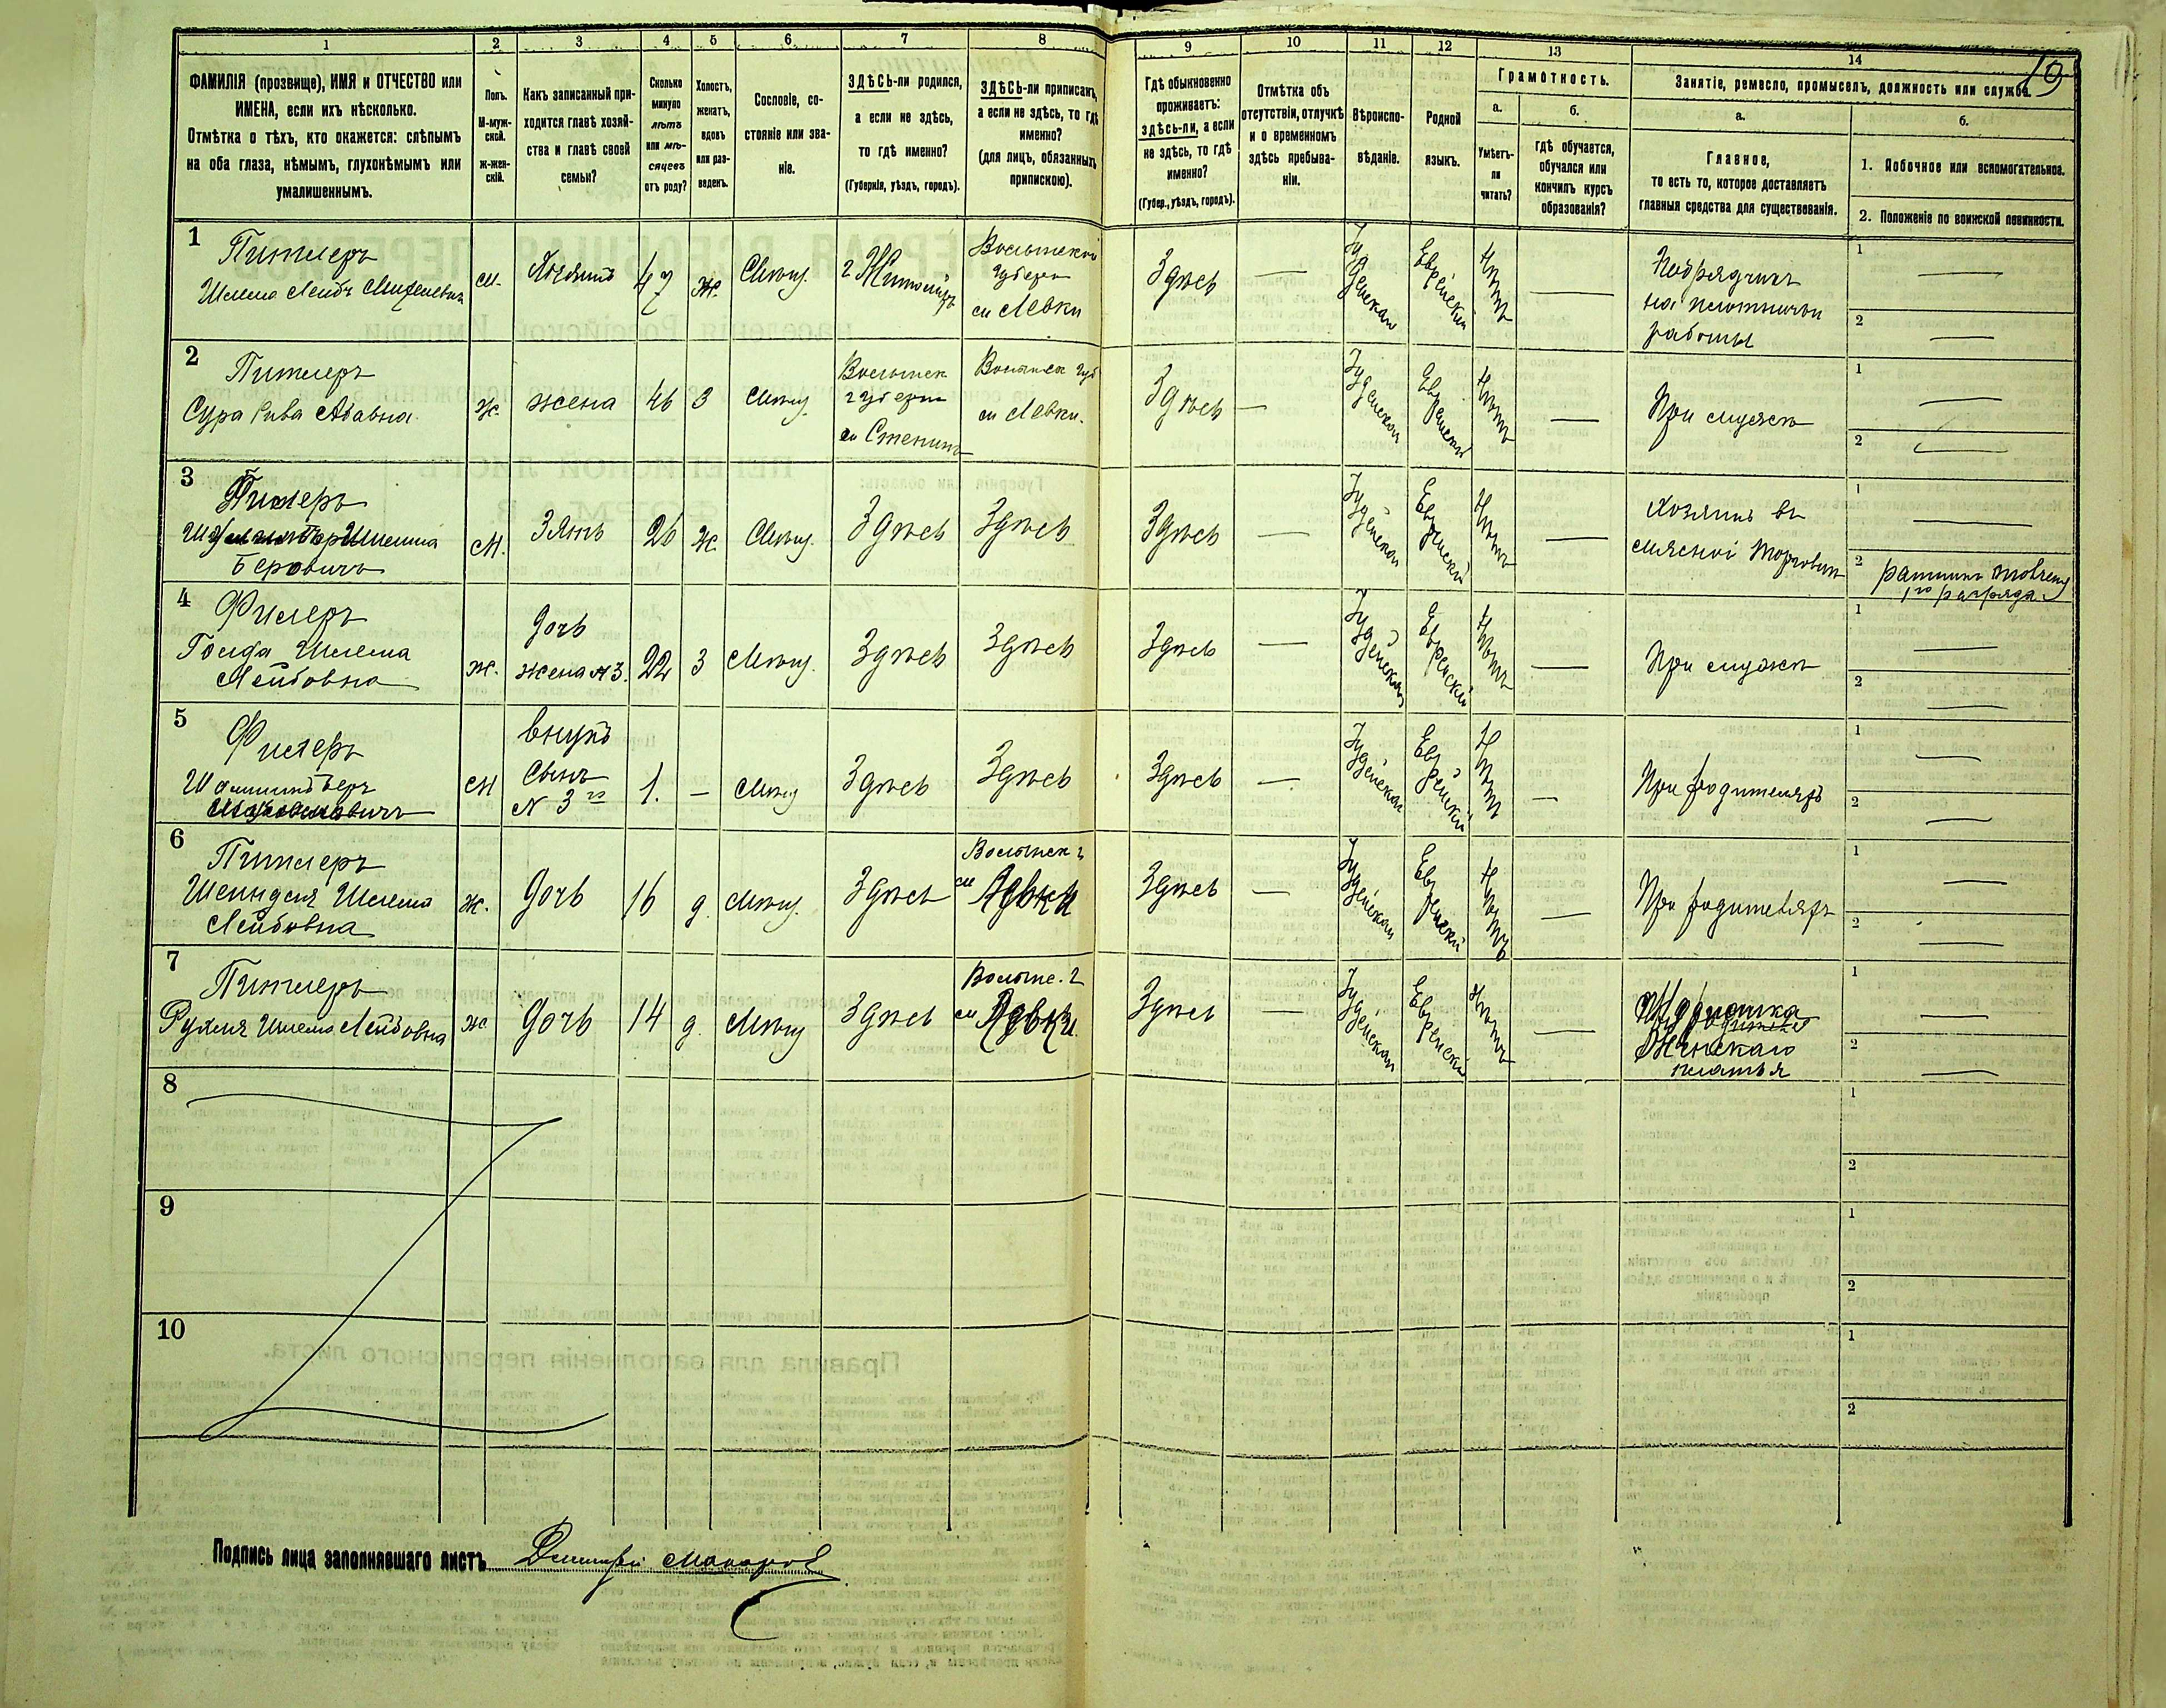 19
1 2 3 4 5 6 7 8 9 10 11 12 13 14
ФАМИЛІЯ (прозвище), ИМЯ и ОТЧЕСТВО или
ИМЕНА, если ихъ нѣсколько.
Отмѣтка о тѣхъ, кто окажется: слѣпымъ
на оба глаза, нѣмымъ, глухонѣмымъ или
умалишеннымъ.
Полъ.
М-муж-
ской.
ж-жен-
скій.
Какъ записанный при-
ходится главѣ хозяй-
ства и главѣ своей
семьи?
Сколько
минуло
лѣтъ
или мѣ-
сяцевъ
отъ роду?
Холостъ,
женатъ,
вдовъ
или раз-
веденъ.
Сословіе, со-
стояніе или зва-
ніе.
ЗДѢСЬ-ли родился,
а если не здѣсь,
то гдѣ именно?
(Губернія, уѣздъ, городъ).
ЗДѢСЬ-ли приписанъ,
а если не здѣсь, то гдѣ
именно?
(для лицъ, обязанныхъ
припискою).
Гдѣ обыкновенно
проживаетъ:
здѣсь-ли, а если
не здѣсь, то гдѣ
именно?
(Губер., уѣздъ, городъ).
Отмѣтка объ
отсутствіи, отлучкѣ
и о временномъ
здѣсь пребыва-
ніи.
Вѣроиспо-
вѣданіе.
Родной
языкъ.
Грамотность.
а.
Умѣетъ-
ли
читать?
б.
гдѣ обучается,
обучался или
кончилъ курсъ
образованія?
Занятіе, ремесло, промыселъ, должность или служба.
а.
Главное,
то есть то, которое доставляетъ
главныя средства для существованія.
б.
1. Побочное или вспомогательное.
2. Положеніе по воинской повинности.
1
Питлеръ
Шлема Лейбъ
м.
47
ж.
Мѣщ.
г Житоміръ
Волынской
губерн
м Левки
Здѣсь
—
Іудейская
Еврейскій
Нѣтъ
—
Подрядчикъ
на плотничьи
работы
1 —
2 —
2
Питлеръ
Сура Рива
ж.
жена
46
З
Мѣщ.
Волынск
губерн
м
м Левки.
Здѣсь
—
Іудейская
Еврейскій
Нѣтъ
—
При мужѣ
1 —
2 —
3
Шлема
Беровичъ
М.
Зять
26
ж
Мѣщ.
Здѣсь
Здѣсь
Здѣсь
—
Іудейская
Еврейскій
Нѣтъ
—
Хозяинъ въ
мясной торговли
1 —
2 ратникъ
1го разряда
4
Фишеръ
Голда Шлема
Лейбовна
ж.
дочь
жена № 3.
22
З
Мѣщ.
Здѣсь
Здѣсь
Здѣсь
—
Іудейская
Еврейскій
Нѣтъ
—
При мужѣ
1 —
2 —
5
Фишеръ
М
внукъ
Сынъ
№ 3го
1.
—
Мѣщ
Здѣсь
Здѣсь
Здѣсь
—
Іудейская
Еврейскій
Нѣтъ
—
При родителяхъ
1 —
2 —
6
Питлеръ
Шейндля Шлема
Лейбовна
ж.
дочь
16
д.
Мѣщ.
Здѣсь
Волынск г
м Левки
Здѣсь
—
Іудейская
Еврейскій
Нѣтъ
—
При родителяхъ
1 —
2 —
7
Питлеръ
Рухля Шлема Лейбовна
ж.
дочь
14
д.
Мѣщ
Здѣсь
Волынс. г
м Левки
Здѣсь
—
Іудейская
Еврейскій
Нѣтъ
—
Женскаго
платья
1 —
2 —
8
1
2
9
1
2
10
1
2
Подпись лица заполнявшаго листъ Дмитрій Макаровъ